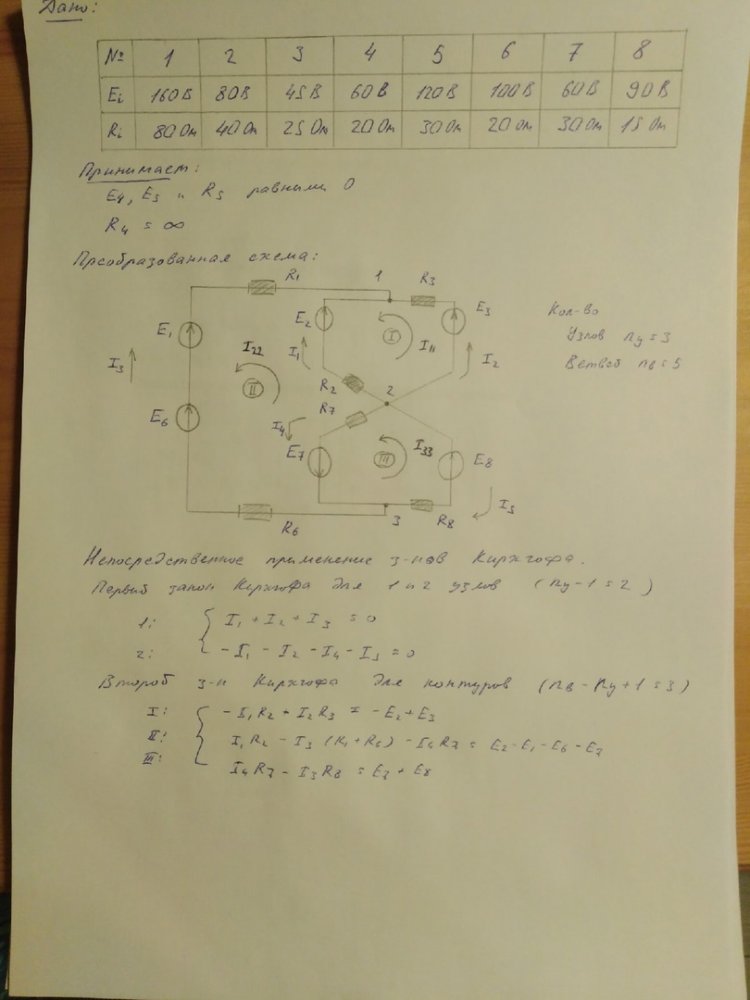 Дано:
№ 1 2 3 4 5 6 7 8
Ei 160В 80В 45В 60В 120В 100В 60В 90В
Ri 80Ом 40Ом 25Ом 20Ом 30Ом 20Ом 30Ом 15Ом
Принимаем:
E4, E5 и R5 равными 0
R4 = ∞
Преобразованная схема:
R1 1 R3
E1 E2 I E3
I3 I22 I1 I11 I2
II R2 2
R7
E6 I4 E7 III I33 E8
R6 3 R8 I5
Кол-во
Узлов nу = 3
Ветвей nв = 5
Непосредственное применение з-нов Кирхгофа.
Первый закон Кирхгофа для 1 и 2 узлов (nу-1=2)
1: I1 + I2 + I3 = 0
2: -I1 - I2 - I4 - I5 = 0
Второй з-н Кирхгофа для контуров (nв-nу+1=3)
I: -I1R2 + I2R3 = -E2+E3
II: I1R2 - I3 (R1+R6) - I4R7 = E2-E1-E6-E7
III: I4R7 - I5R8 = E7+E8